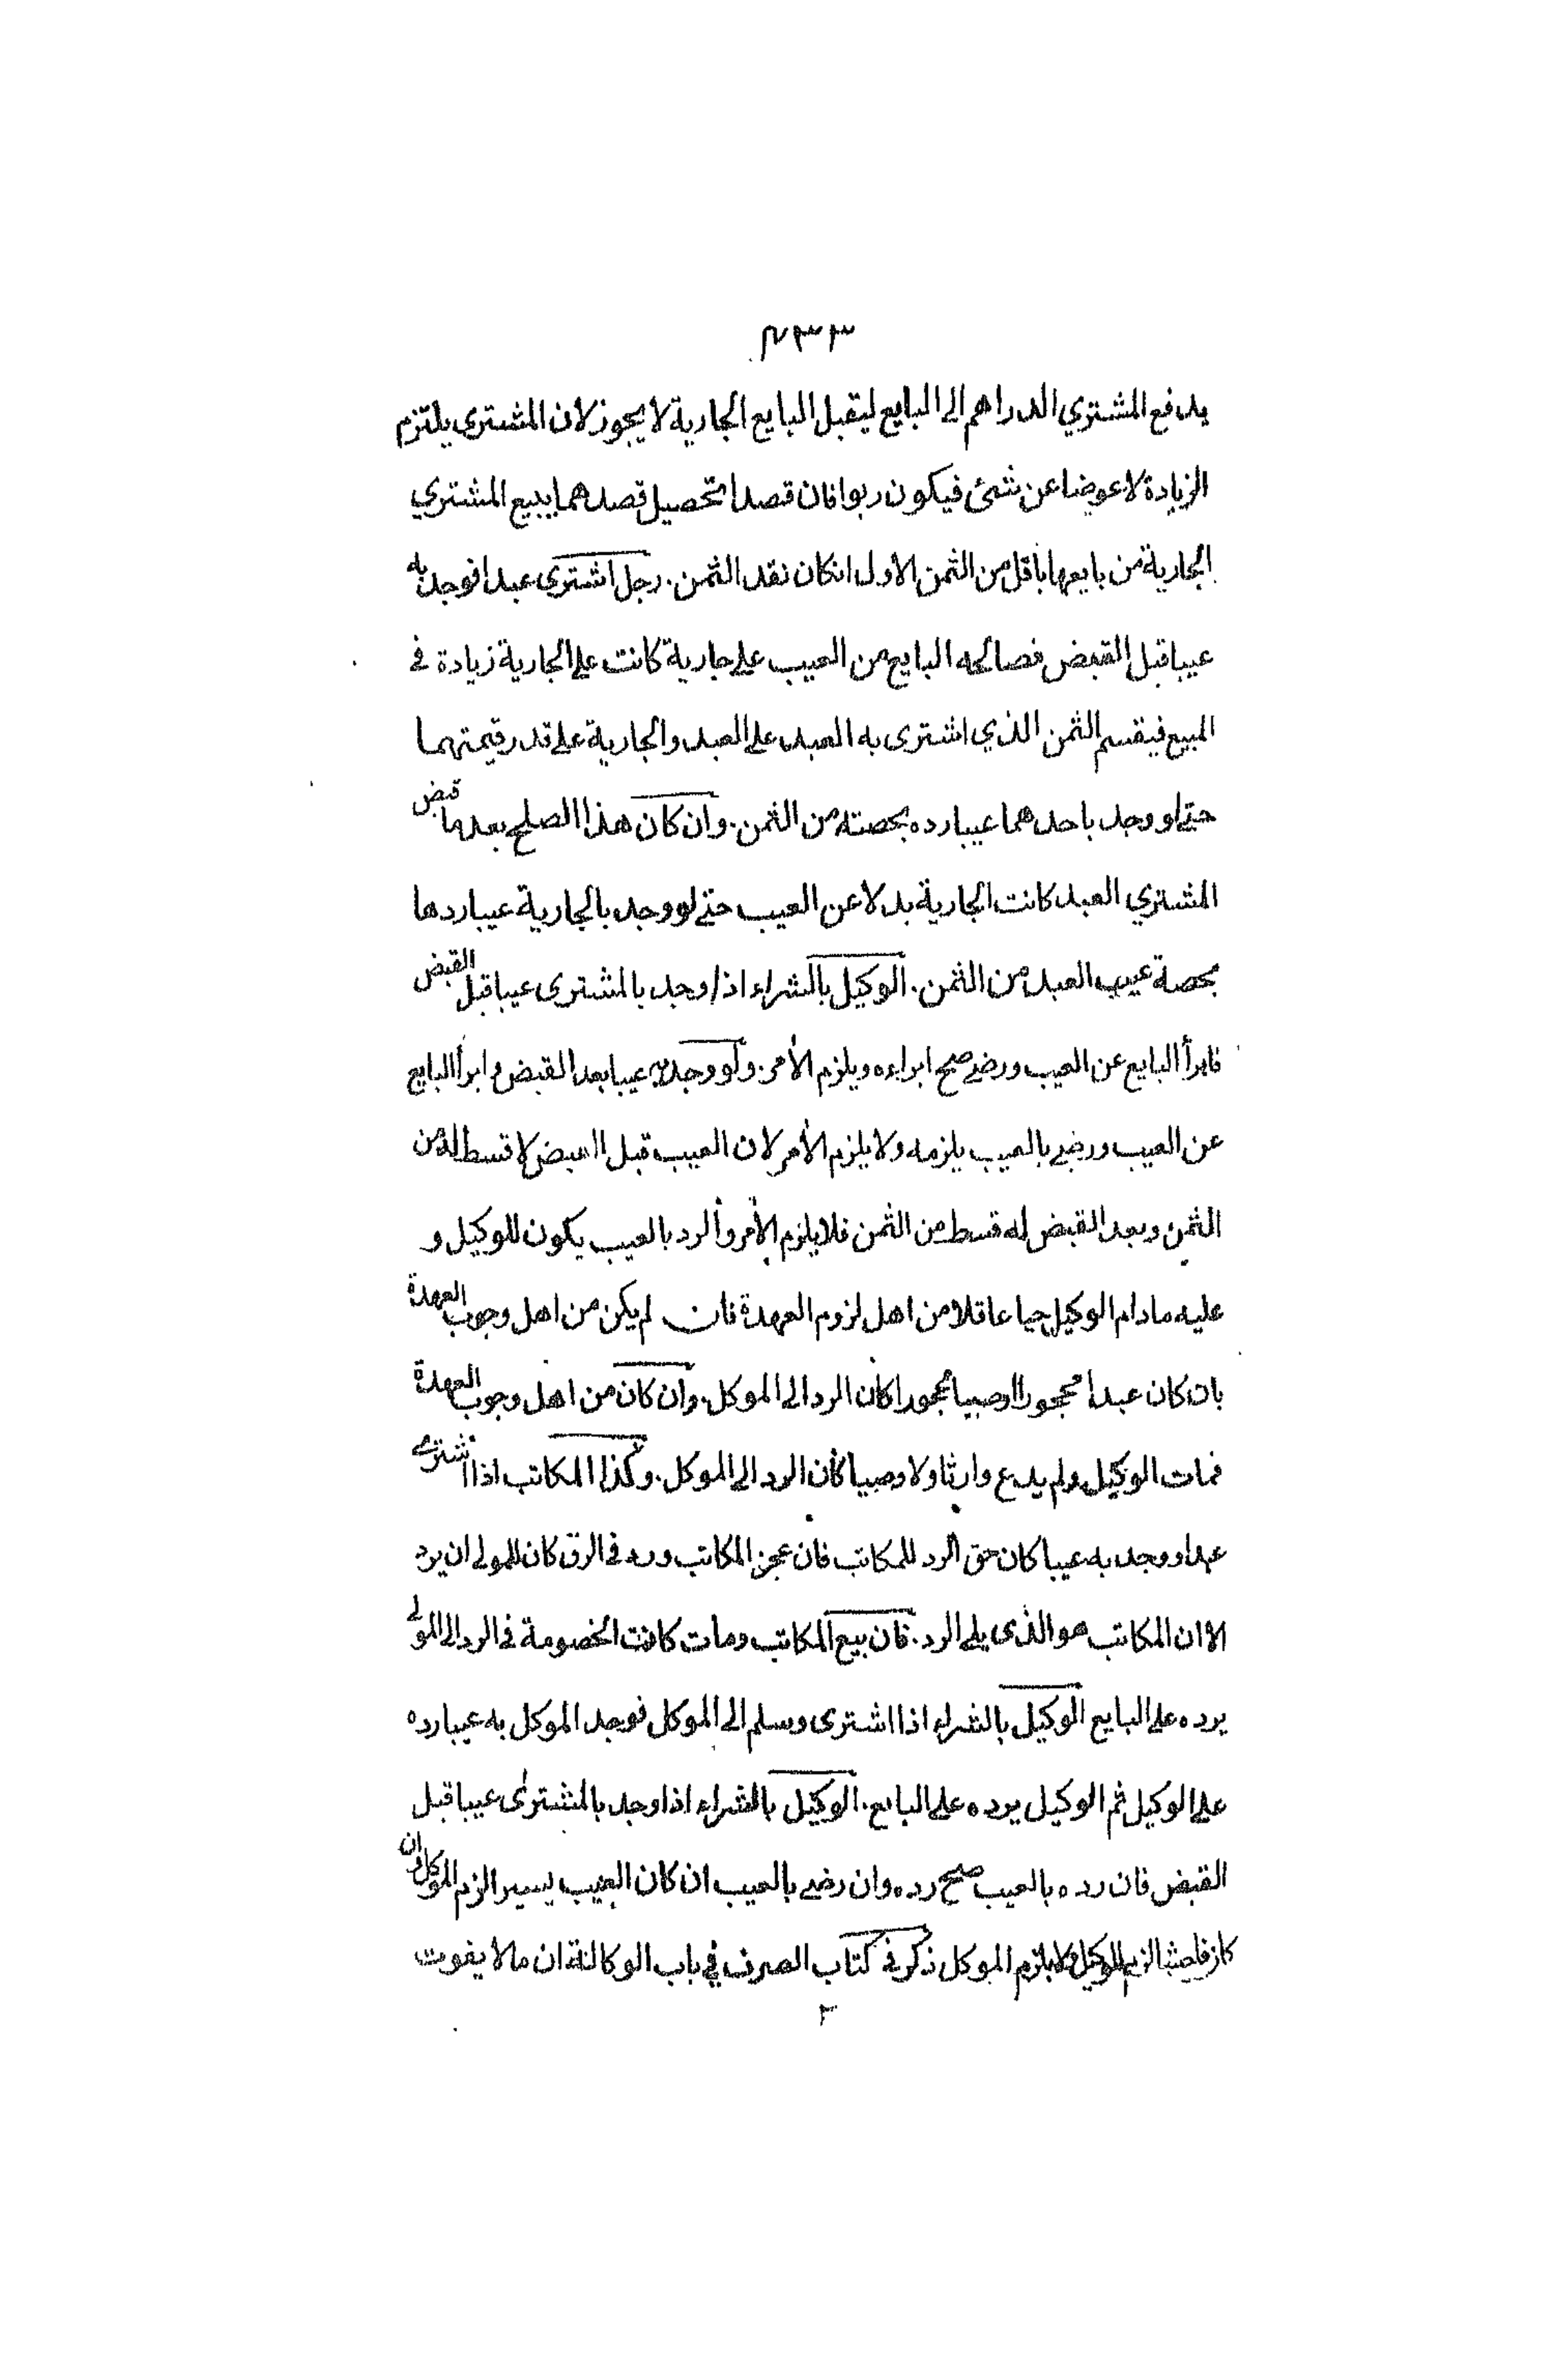 ۲۳۳
يدفع المشتري الدراهم الى البايع ليقبل البايع الجارية لا يجوز لان المشتري يلتزم
الزيادة لا عوضا عن شئ فيكون ربوا فان قصدا تحصيل قصدهما يبيع المشتري
الجارية من بايعها باقل من الثمن الاول ان كان نقد الثمن. رجل اشترى عبدا فوجد به
عيبا قبل القبض فصالحه البايع من العيب على جارية كانت على الجارية زيادة في
المبيع فيقسم الثمن الذي اشترى به العبد على العبد والجارية على قدر قيمتهما
حتى لو وجد باحدهما عيبا رده بحصته من الثمن. وان كان هذا الصلح بعد ما قبض
المشتري العبد كانت الجارية بدلا عن العيب حتى لو وجد بالجارية عيبا ردها
بحصة عيب العبد من الثمن. الوكيل بالشراء اذا وجد بالمشترى عيبا قبل القبض
فابرأ البايع عن العيب ورضي صح ابراءه ويلزم الأمر. ولو وجد به عيبا بعد القبض وابرأ البايع
عن العيب ورضي بالعيب يلزمه ولا يلزم الأمر لان العيب قبل القبض لا قسط له من
الثمن وبعد القبض له قسط من الثمن فلا يلزم الأمر والرد بالعيب يكون للوكيل و
عليه مادام الوكيل حيا عاقلا من اهل لزوم العهدة فان لم يكن من اهل وجوب العهدة
بان كان عبدا محجورا او صبيا محجورا كان الرد الى الموكل. وان كان من اهل وجوب العهدة
فمات الوكيل ولم يدع وارثا ولا وصيا كان الرد الى الموكل. وكذا المكاتب اذا اشترى
عبدا ووجد به عيبا كان حق الرد للمكاتب فان عجز المكاتب ورد في الرق كان للمولى ان يرد
الا ان المكاتب هو الذى يلي الرد. فان بيع المكاتب ومات كانت الخصومة في الرد الى المولى
يرده على البايع الوكيل بالشراء اذا اشترى وسلم الى الموكل فوجد الموكل به عيبا رده
على الوكيل ثم الوكيل يرده على البايع. الوكيل بالشراء اذا وجد بالمشترى عيبا قبل
القبض فان رده بالعيب صح رده وان رضي بالعيب ان كان العيب يسيرا لزم الموكل وان
كان فاحشا لزم الوكيل ولا يلزم الموكل ذكر في كتاب الصرف في باب الوكالة ان ما لا يفوت